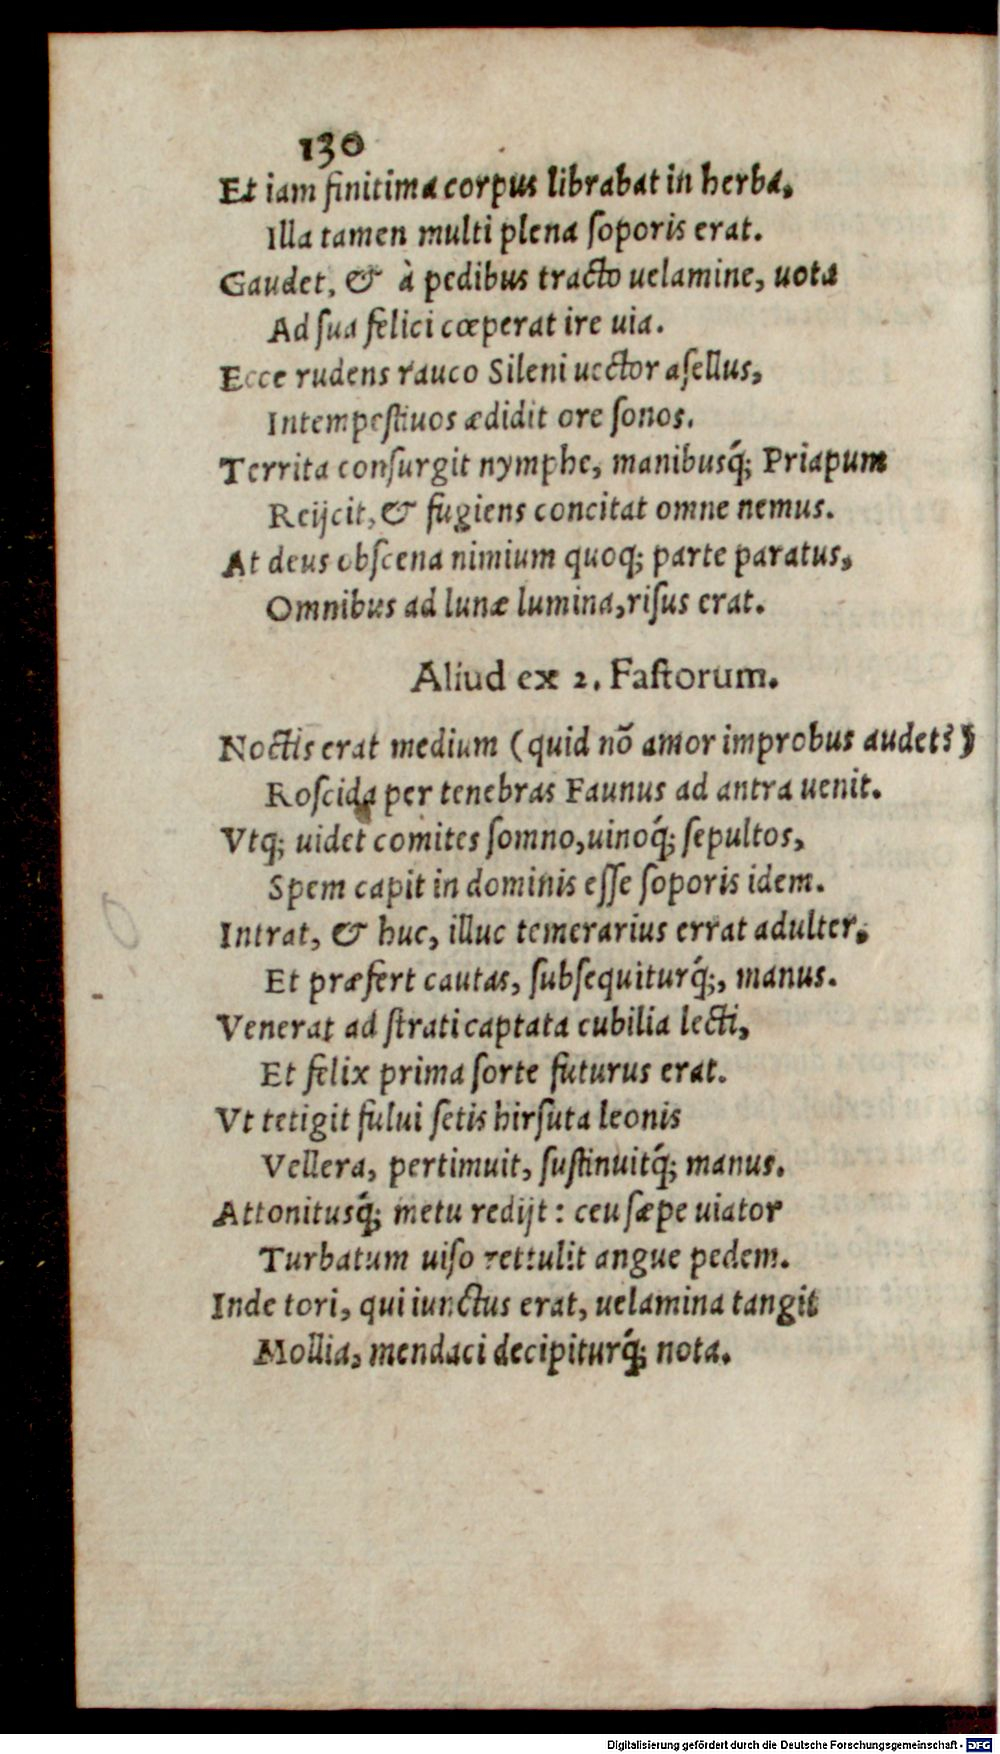 130
Et iam finitima corpus librabat in herba,
Illa tamen multi plena ſoporis erat.
Gaudet, & à pedibus tracto uelamine, uota
Ad ſua felici cœperat ire uia.
Ecce rudens rauco Sileni uector aſellus,
Intempeſtiuos ædidit ore ſonos.
Territa conſurgit nymphe, manibusq́; Priapum
Reijcit, & fugiens concitat omne nemus.
At deus obſcena nimium quoq; parte paratus,
Omnibus ad lunæ lumina, riſus erat.
Aliud ex 2. Faſtorum.
Noctis erat medium (quid nõ amor improbus audet?)
Roſcida per tenebras Faunus ad antra uenit.
Vtq; uidet comites ſomno, uinoq́; ſepultos,
Spem capit in dominis eſſe ſoporis idem.
Intrat, & huc, illuc temerarius errat adulter,
Et præfert cautas, ſubſequiturq́;, manus.
Venerat ad ſtrati captata cubilia lecti,
Et felix prima ſorte futurus erat.
Vt tetigit fului ſetis hirſuta leonis
Vellera, pertimuit, ſuſtinuitq́; manus.
Attonitusq́; metu redijt: ceu ſæpe uiator
Turbatum uiſo rettulit angue pedem.
Inde tori, qui iunctus erat, uelamina tangit
Mollia, mendaci decipiturq́; nota.
Digitalisierung gefördert durch die Deutsche Forschungsgemeinschaft - DFG